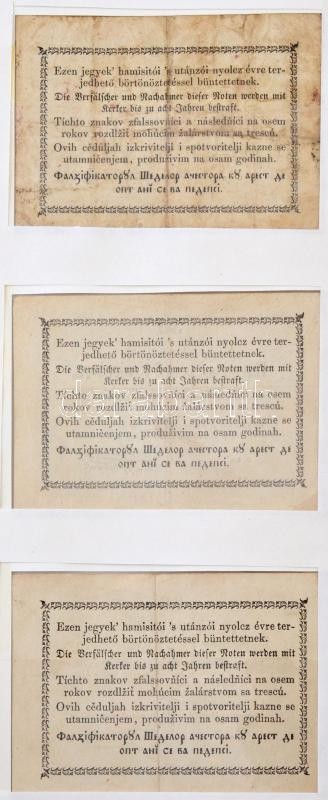 Ezen jegyek' hamisitói 's utánzói nyolcz évre ter-
jedhető börtönöztetéssel büntettetnek.
Die Verfälscher und Nachahmer dieser Noten werden mit
Kerker bis zu acht Jahren bestraft.
Tichto znakov zfalssovňíci a následňíci na osem
rokov rozdlžiť mohúcim žalárstvom sa trescú.
Ovih cèduljah izkrivitelji i spotvoritelji kazne se
utamničenjem, produživim na osam godinah.
Фалзіфікаторꙋл Шеделор ачестора кꙋ арест де
опт анї се ва педепсі.
Ezen jegyek' hamisitói 's utánzói nyolcz évre ter-
jedhető börtönöztetéssel büntettetnek.
Die Verfälscher und Nachahmer dieser Noten werden mit
Kerker bis zu acht Jahren bestraft.
Tichto znakov zfalssovňíci a následňíci na osem
rokov rozdlžiť mohúcim žalárstvom sa trescú.
Ovih cèduljah izkrivitelji i spotvoritelji kazne se
utamničenjem, produživim na osam godinah.
Фалзіфікаторꙋл Шеделор ачестора кꙋ арест де
опт анї се ва педепсі.
Ezen jegyek' hamisitói 's utánzói nyolcz évre ter-
jedhető börtönöztetéssel büntettetnek.
Die Verfälscher und Nachahmer dieser Noten werden mit
Kerker bis zu acht Jahren bestraft.
Tichto znakov zfalssovňíci a následňíci na osem
rokov rozdlžiť mohúcim žalárstvom sa trescú.
Ovih cèduljah izkrivitelji i spotvoritelji kazne se
utamničenjem, produživim na osam godinah.
Фалзіфікаторꙋл Шеделор ачестора кꙋ арест де
опт анї се ва педепсі.